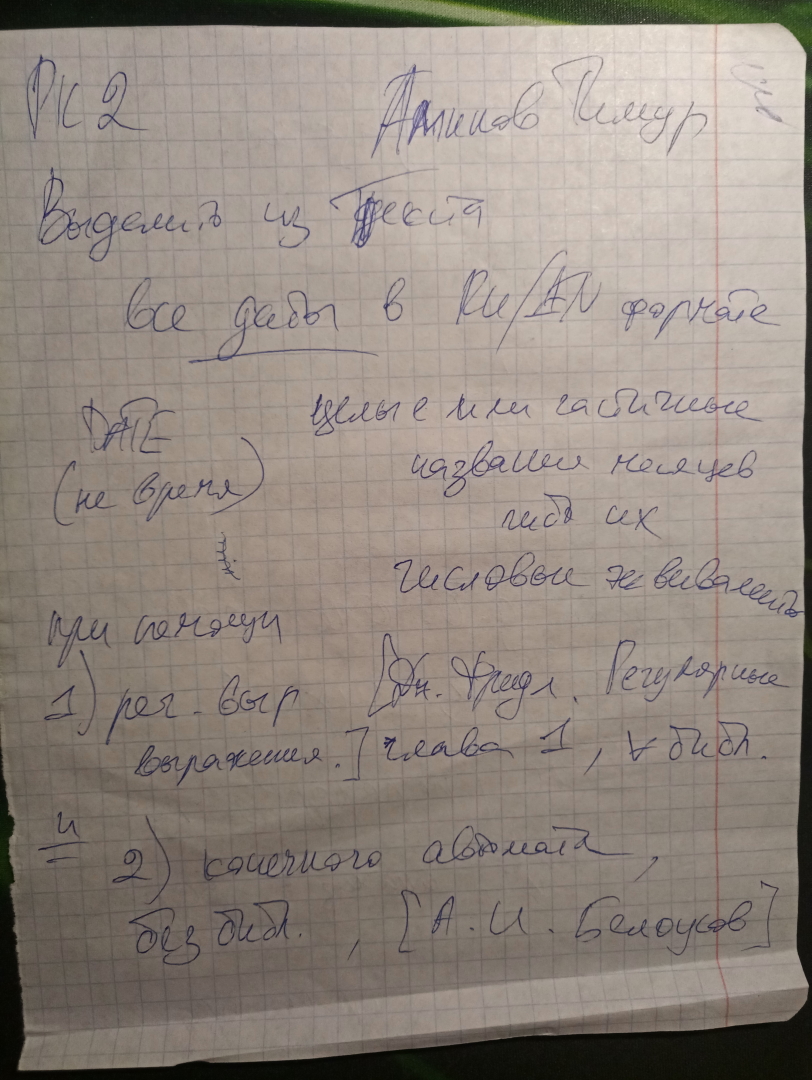 РК2 Аминов Тимур
Выделить из текста
все даты в RU/EN формате
DATE целые или частичные
(не время) названия месяцев
либо их
числовые эквиваленты
при помощи
1) рег. выр [Дж. Фридл. Регулярные
выражения.] глава 1, ∀ библ.
и
2) конечного автомата,
без библ., [А. И. Белоусов]